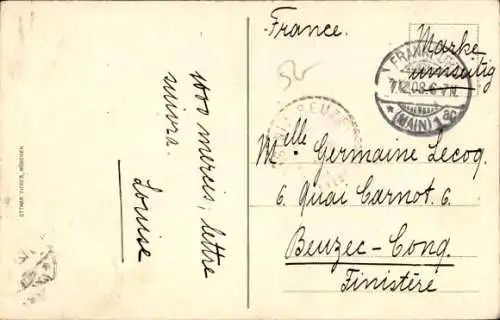 France.
Marke
umseitig
FRANKFURT
7.12.08.6-7N.
* (MAIN) 1 ac
BEUZE
Mlle Germaine Lecoq.
6. Quai Carnot. 6.
Beuzec-Conq.
Finistère
1000 mercis, lettre
suivra.
Louise
OTTMAR ZIEHER, MÜNCHEN